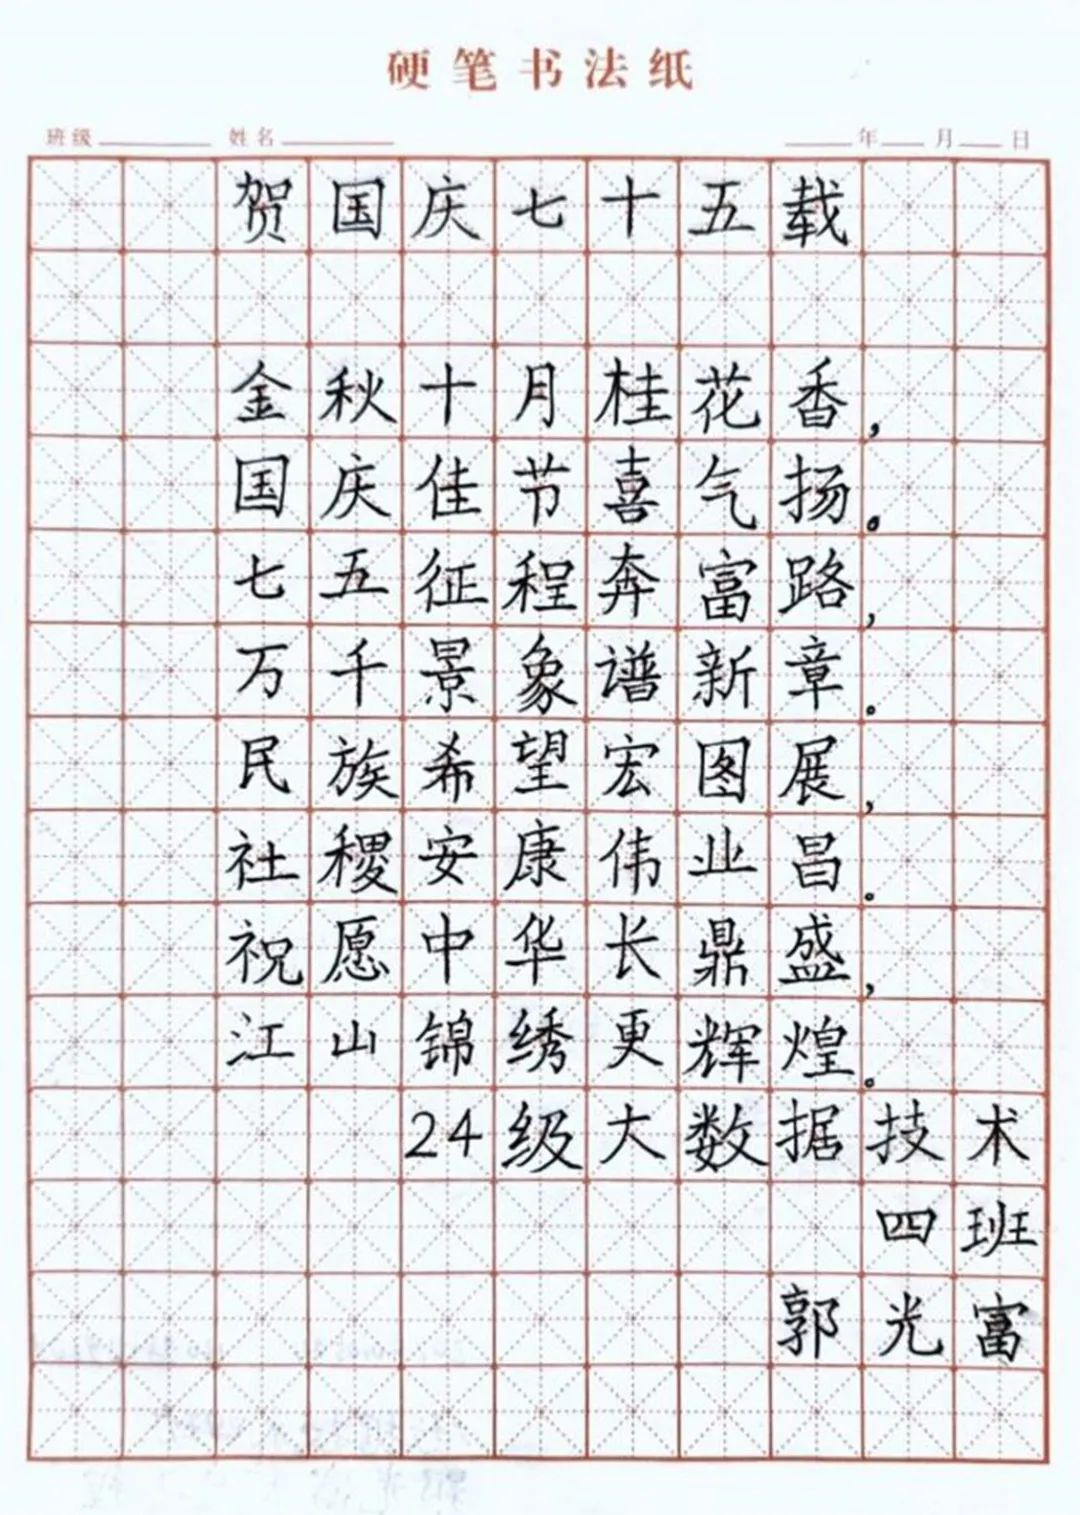 硬笔书法纸
班级 姓名 年 月 日
贺国庆七十五载
金秋十月桂花香,
国庆佳节喜气扬。
七五征程奔富路,
万千景象谱新章。
民族希望宏图展,
社稷安康伟业昌。
祝愿中华长鼎盛,
江山锦绣更辉煌。
24级大数据技术
四班
郭光富